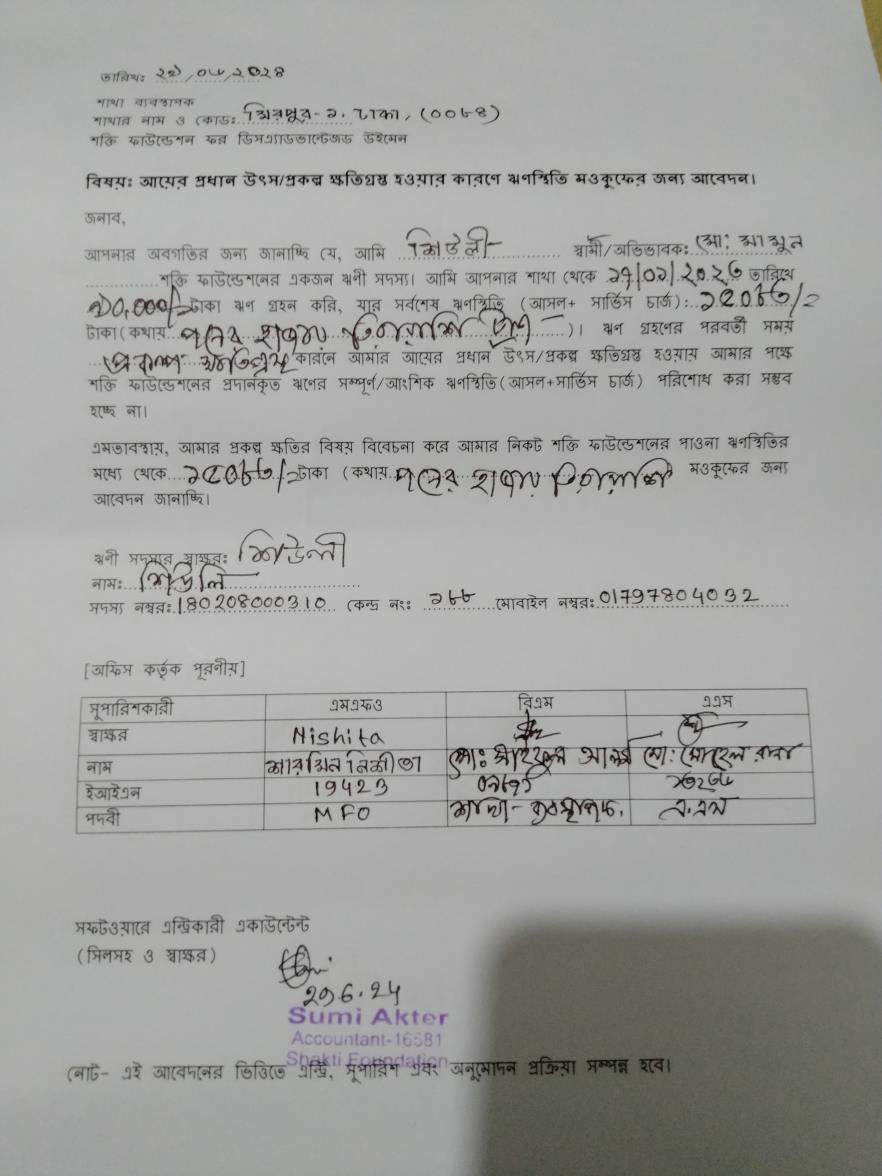 তারিখঃ ২৯/০৬/২০২৪
শাখা ব্যবস্থাপক
শাখার নাম ও কোডঃ মিরপুর-২, ঢাকা, (০০৮৪)
শক্তি ফাউন্ডেশন ফর ডিসএ্যাডভান্টেজড উইমেন
বিষয়ঃ আয়ের প্রধান উৎস/প্রকল্প ক্ষতিগ্রস্থ হওয়ার কারণে ঋণস্থিতি মওকুফের জন্য আবেদন।
জনাব,
আপনার অবগতির জন্য জানাচ্ছি যে, আমি শিউলী স্বামী/অভিভাবকঃ মো: মামুন
শক্তি ফাউন্ডেশনের একজন ঋনী সদস্য। আমি আপনার শাখা থেকে তারিখে
টাকা ঋণ গ্রহন করি, যার সর্বশেষ ঋণস্থিতি (আসল+ সার্ভিস চার্জ): ১৫০৮৩/=
টাকা (কথায় পনের হাজার তিরাশি )। ঋণ গ্রহনের পরবর্তী সময়
প্রকল্প ক্ষতিগ্রস্থ কারনে আমার আয়ের প্রধান উৎস/প্রকল্প ক্ষতিগ্রস্থ হওয়ায় আমার পক্ষে
শক্তি ফাউন্ডেশনের প্রদানকৃত ঋনের সম্পূর্ণ/আংশিক ঋণস্থিতি (আসল+সার্ভিস চার্জ) পরিশোধ করা সম্ভব
হচ্ছে না।
এমতাবস্থায়, আমার প্রকল্প ক্ষতির বিষয় বিবেচনা করে আমার নিকট শক্তি ফাউন্ডেশনের পাওনা ঋণস্থিতির
মধ্যে থেকে ১৫০৮৩/= টাকা (কথায় পনের হাজার তিরাশি মওকুফের জন্য
আবেদন জানাচ্ছি।
ঋনী সদস্যের স্বাক্ষরঃ শিউলী
নামঃ শিউলি
সদস্য নম্বরঃ 180208000310 কেন্দ্র নংঃ ১৮৮ মোবাইল নম্বরঃ 01797804032
[অফিস কর্তৃক পূরণীয়]
সুপারিশকারী এমএফও বিএম এএস
স্বাক্ষর Nishita
নাম শারমিন নিশীতা মো: সাইফুল আলম মো: সোহেল রানা
ইআইএন 19423
পদবী MFO শাখা-ব্যবস্থাপক. এ.এস
সফটওয়ারে এন্ট্রিকারী একাউন্টেন্ট
(সিলসহ ও স্বাক্ষর)
29.6.24
Sumi Akter
Accountant-16581
Shakti Foundation
নোট- এই আবেদনের ভিত্তিতে এন্ট্রি, সুপারিশ এবং অনুমোদন প্রক্রিয়া সম্পন্ন হবে।